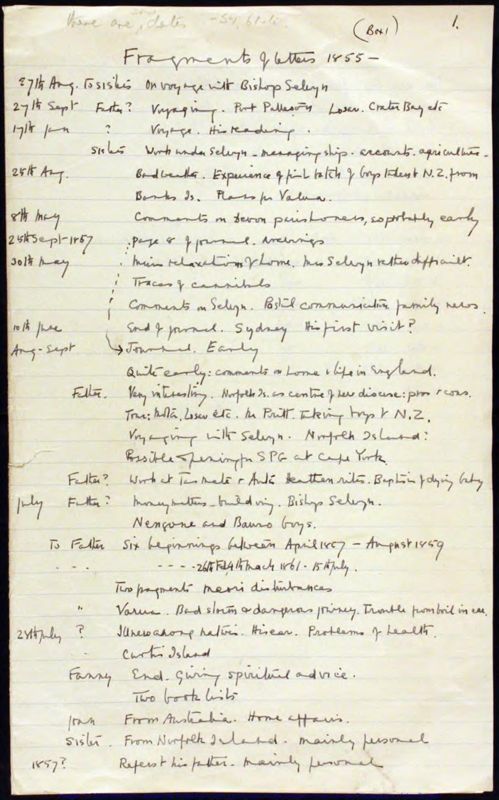 there are dates - 54, 61 -
(Box 1)
1.
Fragments of letters 1855 —
27th Aug. To sister On voyage with Bishop Selwyn
27th Sept Father? Voyaging. Port Patteson Losev. Crater Bay etc
17th Jan ? Voyage. His reading.
Sister Work under Selwyn - managing ship. accounts. agriculture -
28th Aug. Bad weather. Experience of first batch of boys to best N.Z. from
Banks Is. Plans for Valua.
8th May Comments on Devon parishoners, so probably early
28th Sept - 1857 page 8 of journal. Meetings
30th May Miss relaxations of home. Mrs Selwyn rather difficult.
Traces of cannibals
Comments on Selwyn. Postal communication family news.
10th June End of journal. Sydney His first visit?
Aug - Sept Journal. Early
Quite early: comments on home & life in England.
Father. Very interesting. Norfolk Is. as centre of new diocese: pros & cons.
Tour: Mota, Losev etc. Mr Pritt taking boys to N.Z.
Voyaging with Selwyn. Norfolk Island:
Possible opening for SPG at Cape York.
Father? Work at Tasmate & heathen rites. Baptism of dying baby
July Father? Money matters. building. Bishop Selwyn.
Nengone and Bauro boys.
To Father Six beginnings between April 1857 - August 1859
- - - - 26th Feb, 4th March 1861 - 15th July.
Two fragments Maori disturbances
" Varua. Bad storm & dangerous journey. Trouble from boil in ear.
28th July ? Illness among natives. His ear. Problems of health.
Curtis Island
Fanny End. Giving spiritual advice.
Two book lists
Joan From Australia. Home affairs.
Sister. From Norfolk Island - mainly personal
1857? Refers to his father. Mainly personal